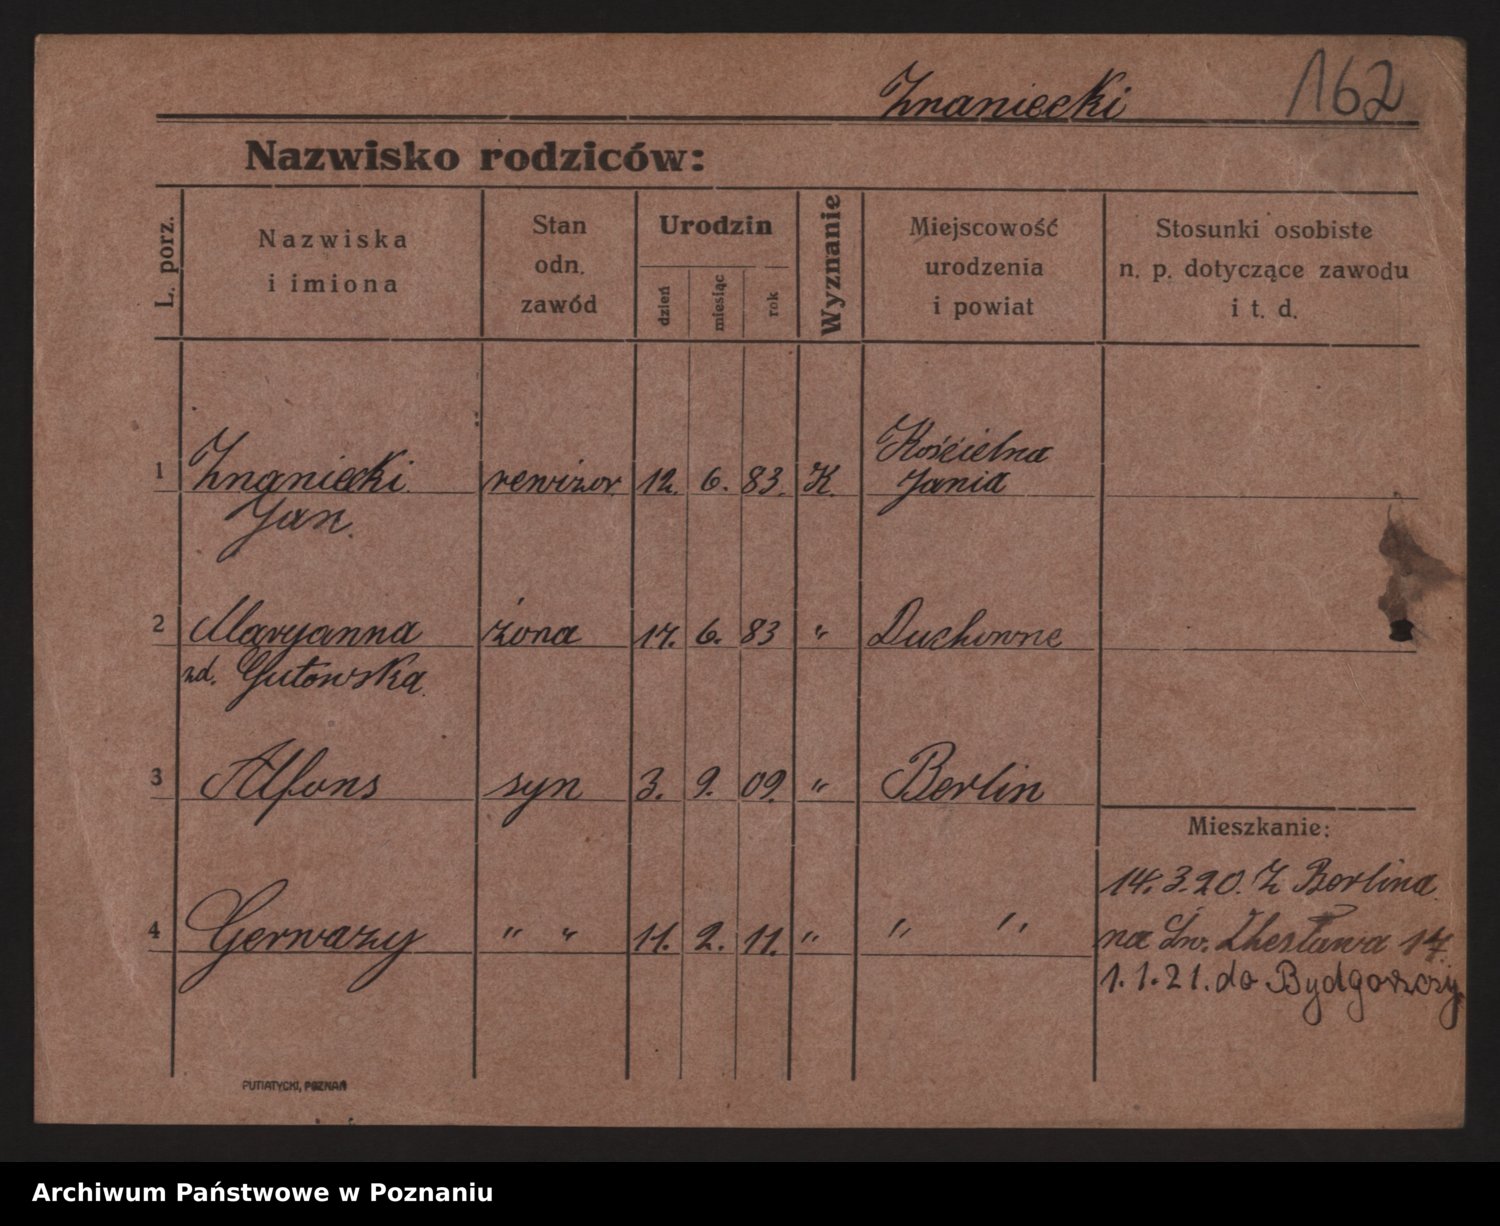 Znaniecki 162
Nazwisko rodziców:
L. porz.
Nazwiska
i imiona
Stan
odn.
zawód
Urodzin
dzień
miesiąc
rok
Wyznanie
Miejscowość
urodzenia
i powiat
Stosunki osobiste
n. p. dotyczące zawodu
i t. d.
1 Znaniecki rewizor 12. 6. 83. K. Kościelna
Jan. Jania
2 Maryanna żona 17. 6. 83 " Duchowne
zd. Gutowska
3 Alfons syn 3. 9. 09. " Berlin
4 Gerwazy " " 11. 2. 11. " " "
Mieszkanie:
14. 3. 20. Z Berlina
na Św. 17.
1. 1. 21. do Bydgoszczy
PUTIATYCKI, POZNAŃ
Archiwum Państwowe w Poznaniu